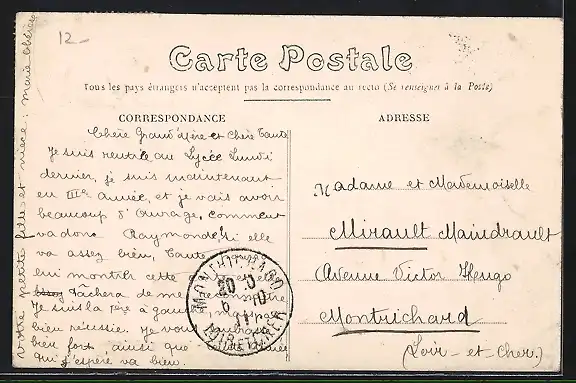 12-
Carte Postale
Tous les pays étrangers n'acceptent pas la correspondance au recto (Se renseigner à la Poste)
CORRESPONDANCE
Chère Grand'Mère et Chère Tante
Je suis rentrée au Lycée Lundi
dernier, je suis maintenant
en IIIe année, et je vais avoir
beaucoup d'Ouvrage, comment
va donc Raymonde, si elle
va assez bien, Tante
lui montrer cette
tâchera de me reconnaître
Je suis la 1ère à gauche
bien réussie. Je vous embrasse
bien fort ainsi que
qui j'espère va bien.
votre petite fille et nièce: Marie
ADRESSE
Madame et Mademoiselle
Mirault Maindrault
Avenue Victor Hugo
Montrichard
(Loir-et-Cher.)
MONTRICHARD
20-10
11
LOIR-ET-CHER